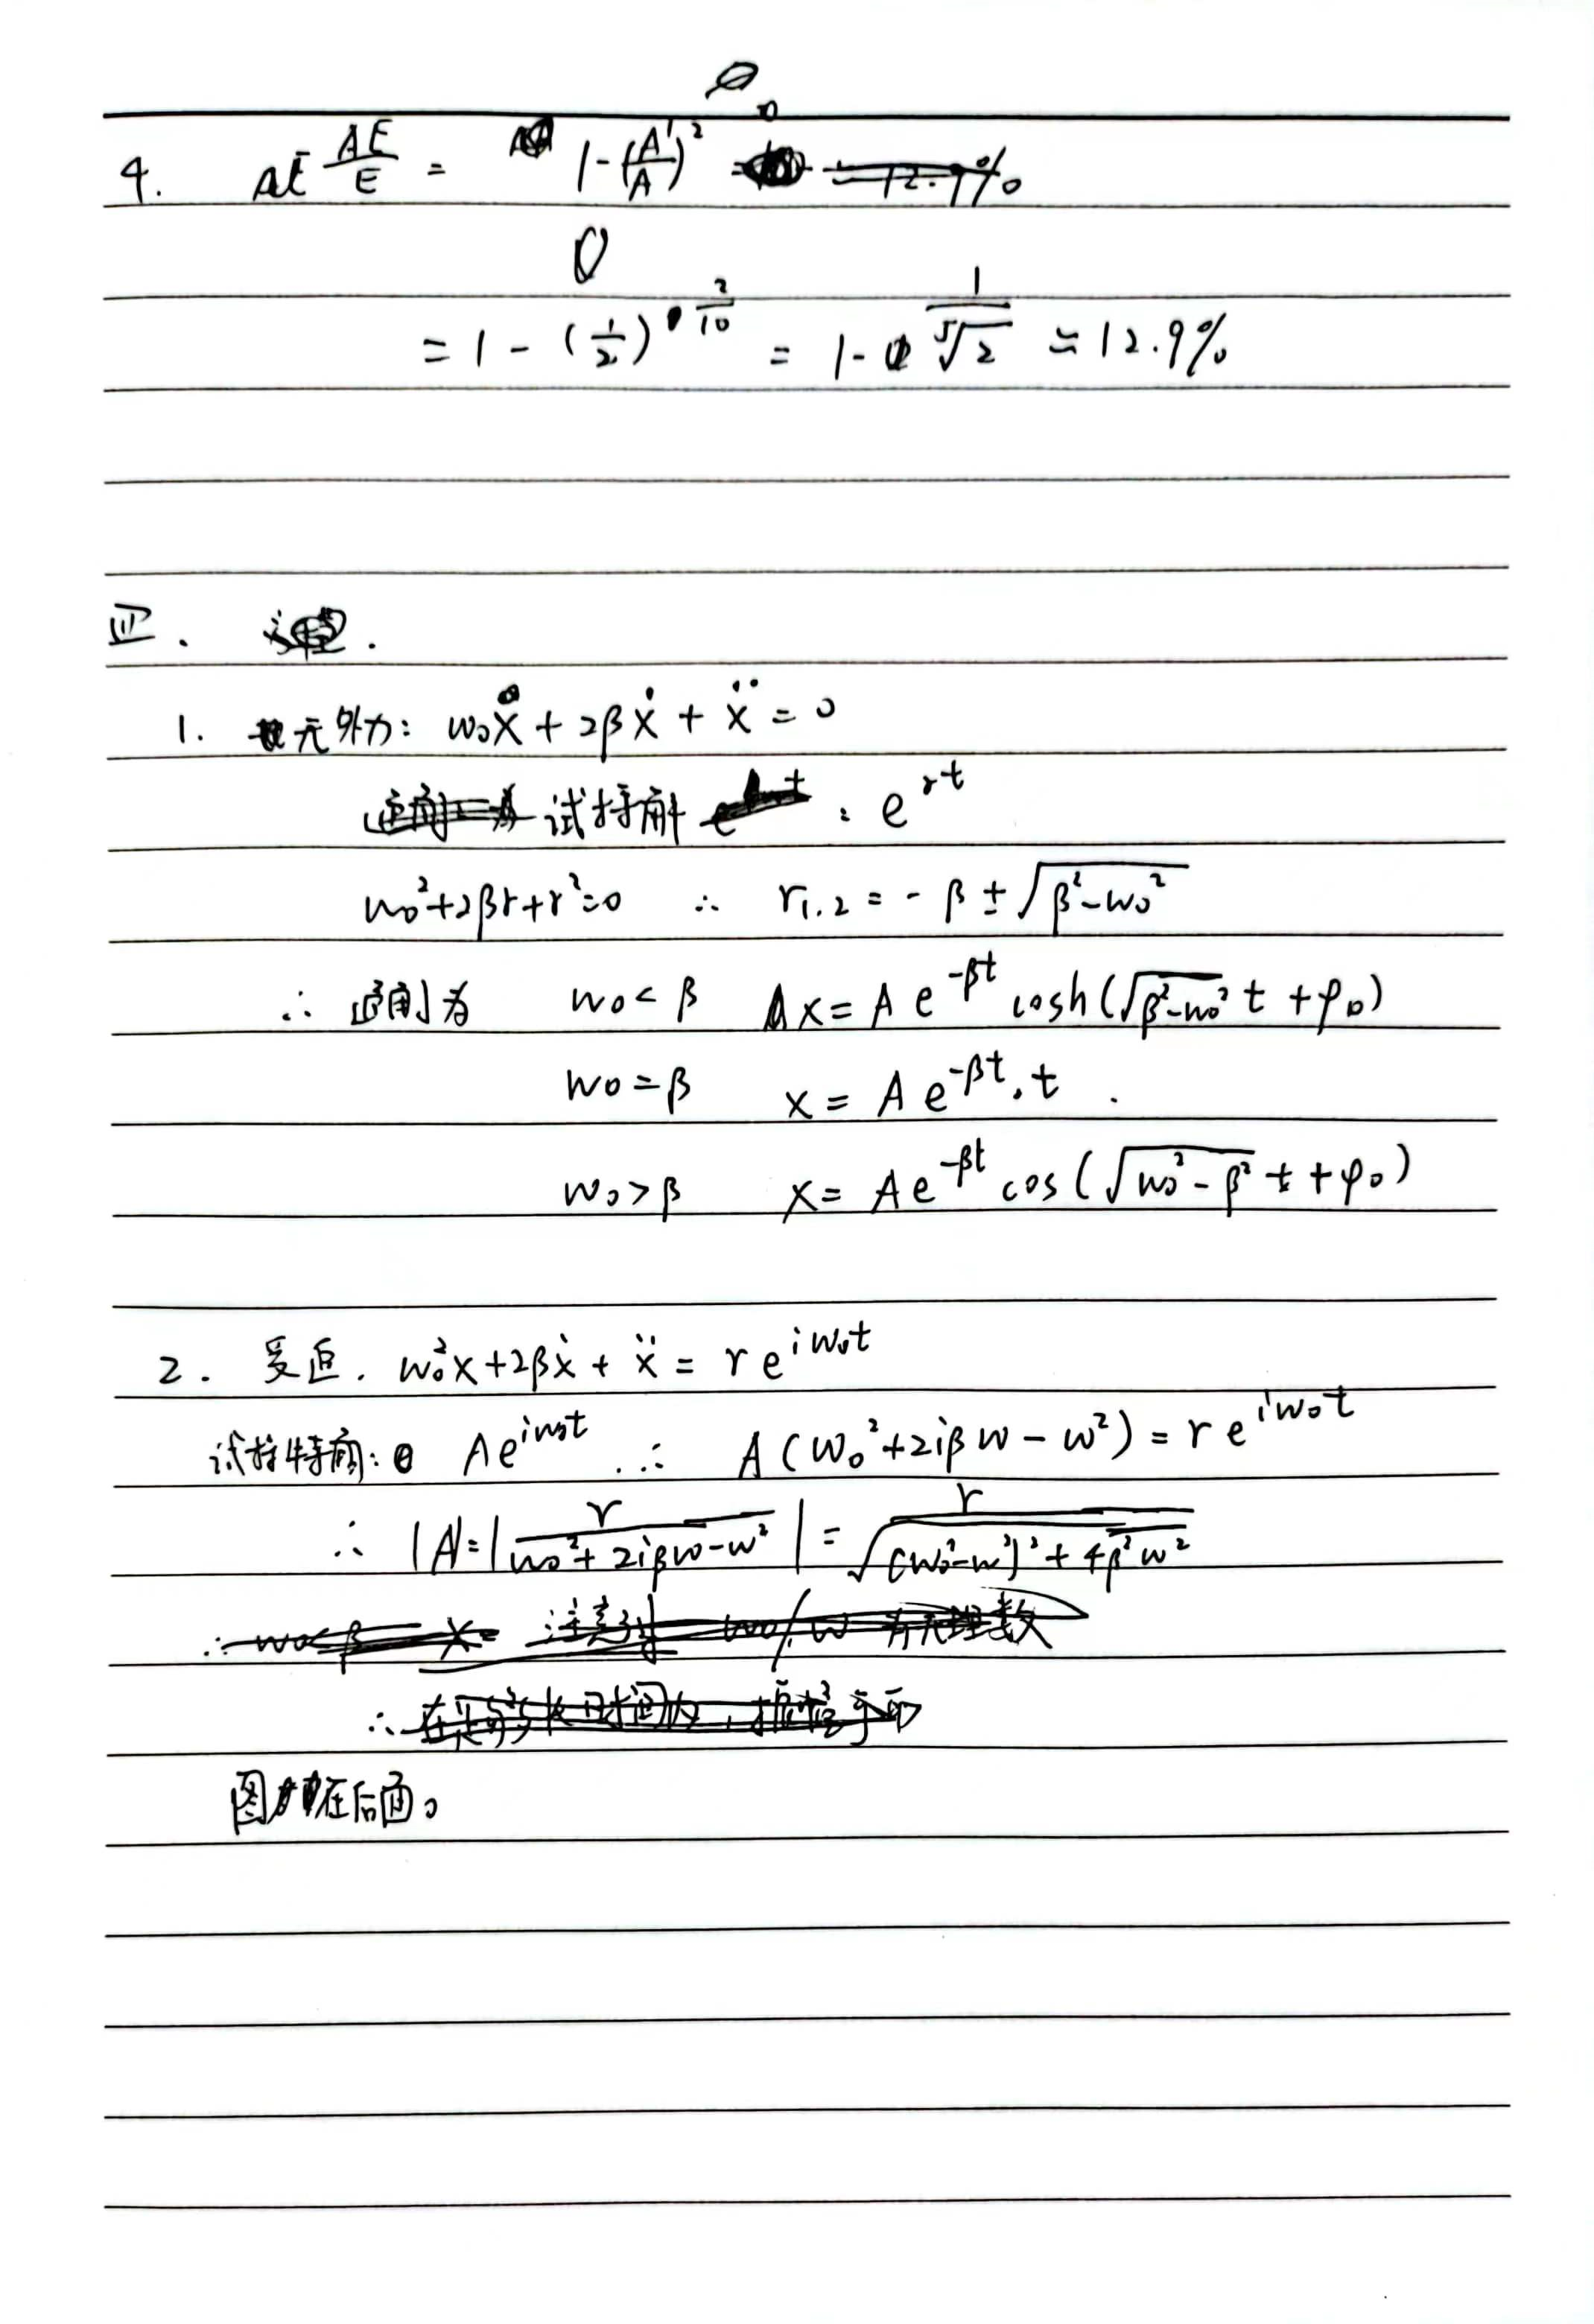 4. ΔE/E = 1-(A'/A)²
= 1 - (1/2)^(2/10) = 1- 1/⁵√2 ≈ 12.9%
四.
1. 无外力: w₀x + 2βẋ + ẍ = 0
试特解 : e^(rt)
w₀²+2βr+r²=0 ∴ r₁.₂ = - β ± √(β²-w₀²)
∴ 通解为 w₀ < β x = A e^(-βt) cosh(√(β²-w₀²) t + φ₀)
w₀ = β x = A e^(-βt) . t .
w₀ > β x = A e^(-βt) cos (√(w₀²-β²) t + φ₀)
2. 受迫. w₀²x+2βẋ + ẍ = r e^(iw₀t)
试特解: A e^(iw₀t) ∴ A (w₀²+2iβw - w²) = r e^(iw₀t)
∴ |A|=| r/(w₀²+ 2iβw-w²) | = r/√((w₀²-w²)² + 4β²w²)
图在后面。